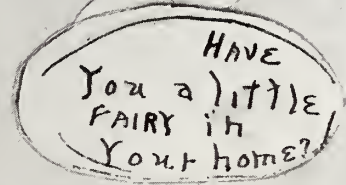 HAVE
You a little
FAIRY in
Your home?